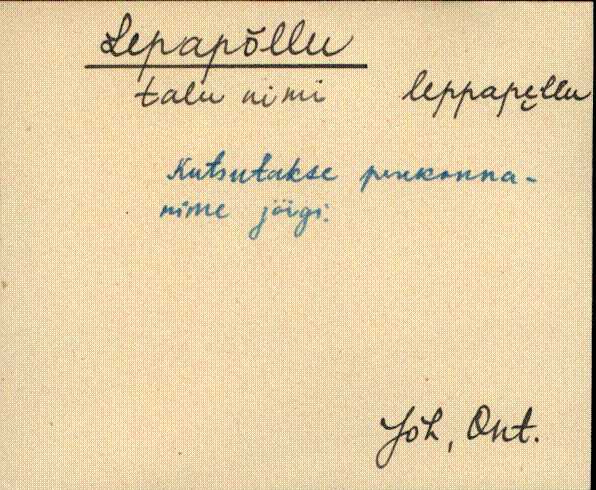 Lepapõllu
talu nimi leppape̮llu
Kutsutakse perekonna-
nime järgi.
Jõh, Ont.